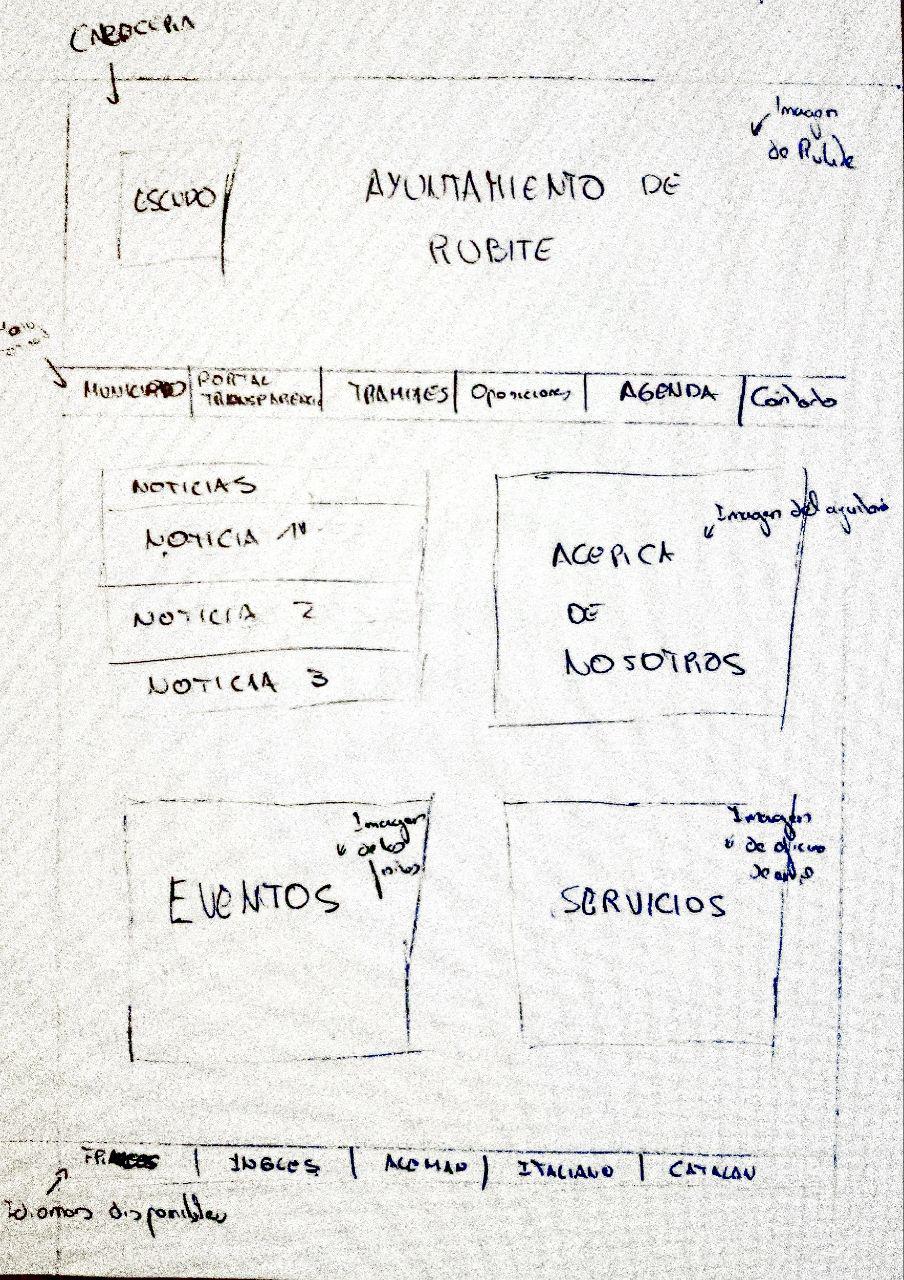 CABECERA
Imagen
de Rubite
ESCUDO
AYUNTAMIENTO DE
RUBITE
MUNICIPIO
PORTAL
TRANSPARENCIA
TRAMITES
Oposiciones
AGENDA
Contacto
NOTICIAS
NOTICIA 1
NOTICIA 2
NOTICIA 3
Imagen del
ACERCA
DE
NOSOTROS
Imagen
de los
EVENTOS
Imagen
de
SERVICIOS
FRANCES
INGLES
ALEMAN
ITALIANO
CATALAN
Idiomas disponibles